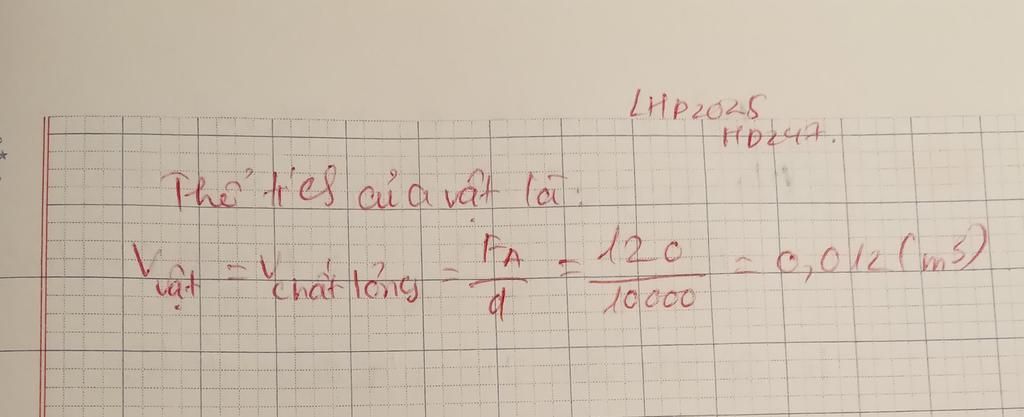 LHP2025
HD247.
Thể tích của vật là:
V vật = V chất lỏng = F_A / d = 120 / 10000 = 0,012 (m3)